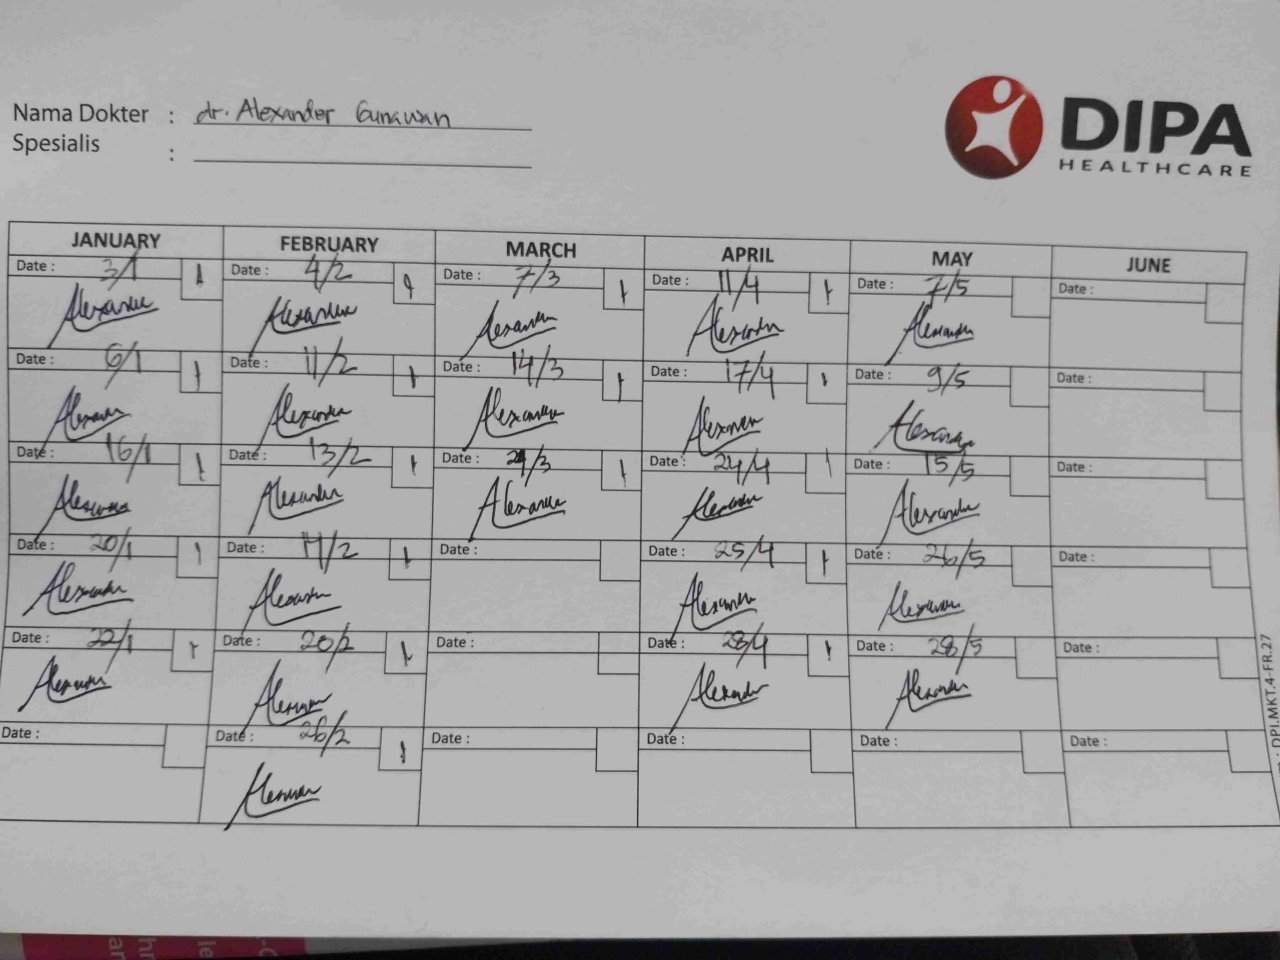 Nama Dokter : dr. Alexander Gunawan
Spesialis :
DIPA
HEALTHCARE
JANUARY FEBRUARY MARCH APRIL MAY JUNE
Date : 3/1 1 Date : 4/2 1 Date : 7/3 1 Date : 11/4 1 Date : 7/5 Date :
Alexander Alexander Alexander Alexander Alexander
Date : 6/1 1 Date : 11/2 1 Date : 14/3 1 Date : 17/4 1 Date : 9/5 Date :
Alexander Alexander Alexander Alexander Alexander
Date : 16/1 1 Date : 13/2 1 Date : 21/3 1 Date : 24/4 1 Date : 15/5 Date :
Alexander Alexander Alexander Alexander Alexander
Date : 20/1 1 Date : 1 Date : Date : 25/4 1 Date : 26/5 Date :
Alexander Alexander Alexander Alexander
Date : 22/1 1 Date : 20/2 1 Date : Date : 28/4 1 Date : 28/5 Date :
Alexander Alexander Alexander Alexander
Date : Date : 26/2 1 Date : Date : Date : Date :
Alexander
: DPI.MKT.4-FR.27